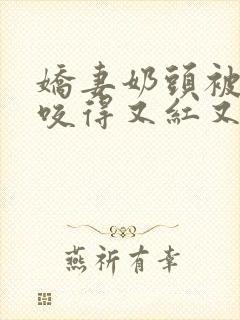 嬌妻奶頭被
咬得又紅又
燕祈有幸